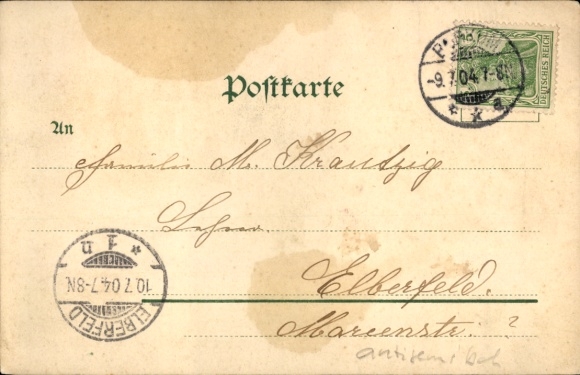 DEUTSCHES REICH
-9.7.04.7-8N.
* * a
Postkarte
An
Familie M. Krautzig
Lehrer
Elberfeld.
Marienstr. ?
ELBERFELD
10.7.04.7-8N.
* 1 ü